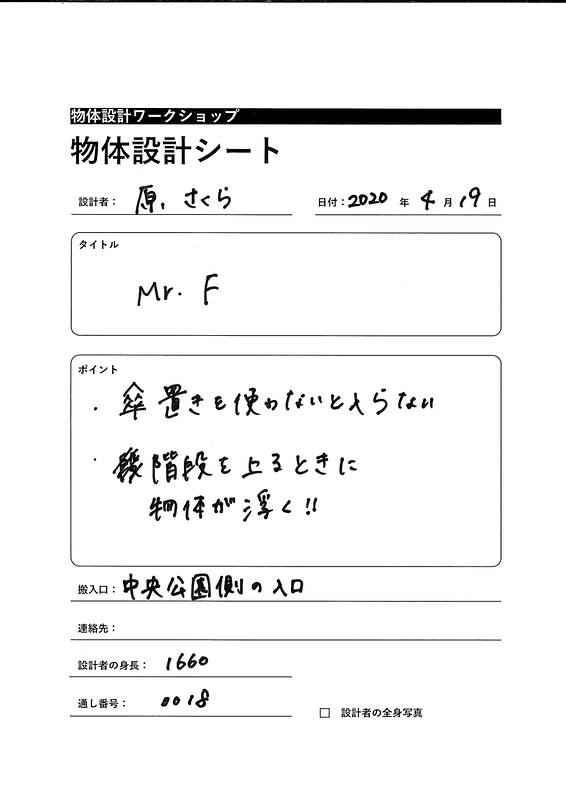 物体設計ワークショップ
物体設計シート
設計者： 原、さくら 日付：2020 年 4 月 19 日
タイトル
Mr. F
ポイント
・傘置きを使わないと入らない
・階段を上るときに
物体が浮く!!
搬入口：中央公園側の入口
連絡先：
設計者の身長： 1660
通し番号： 0018
□ 設計者の全身写真